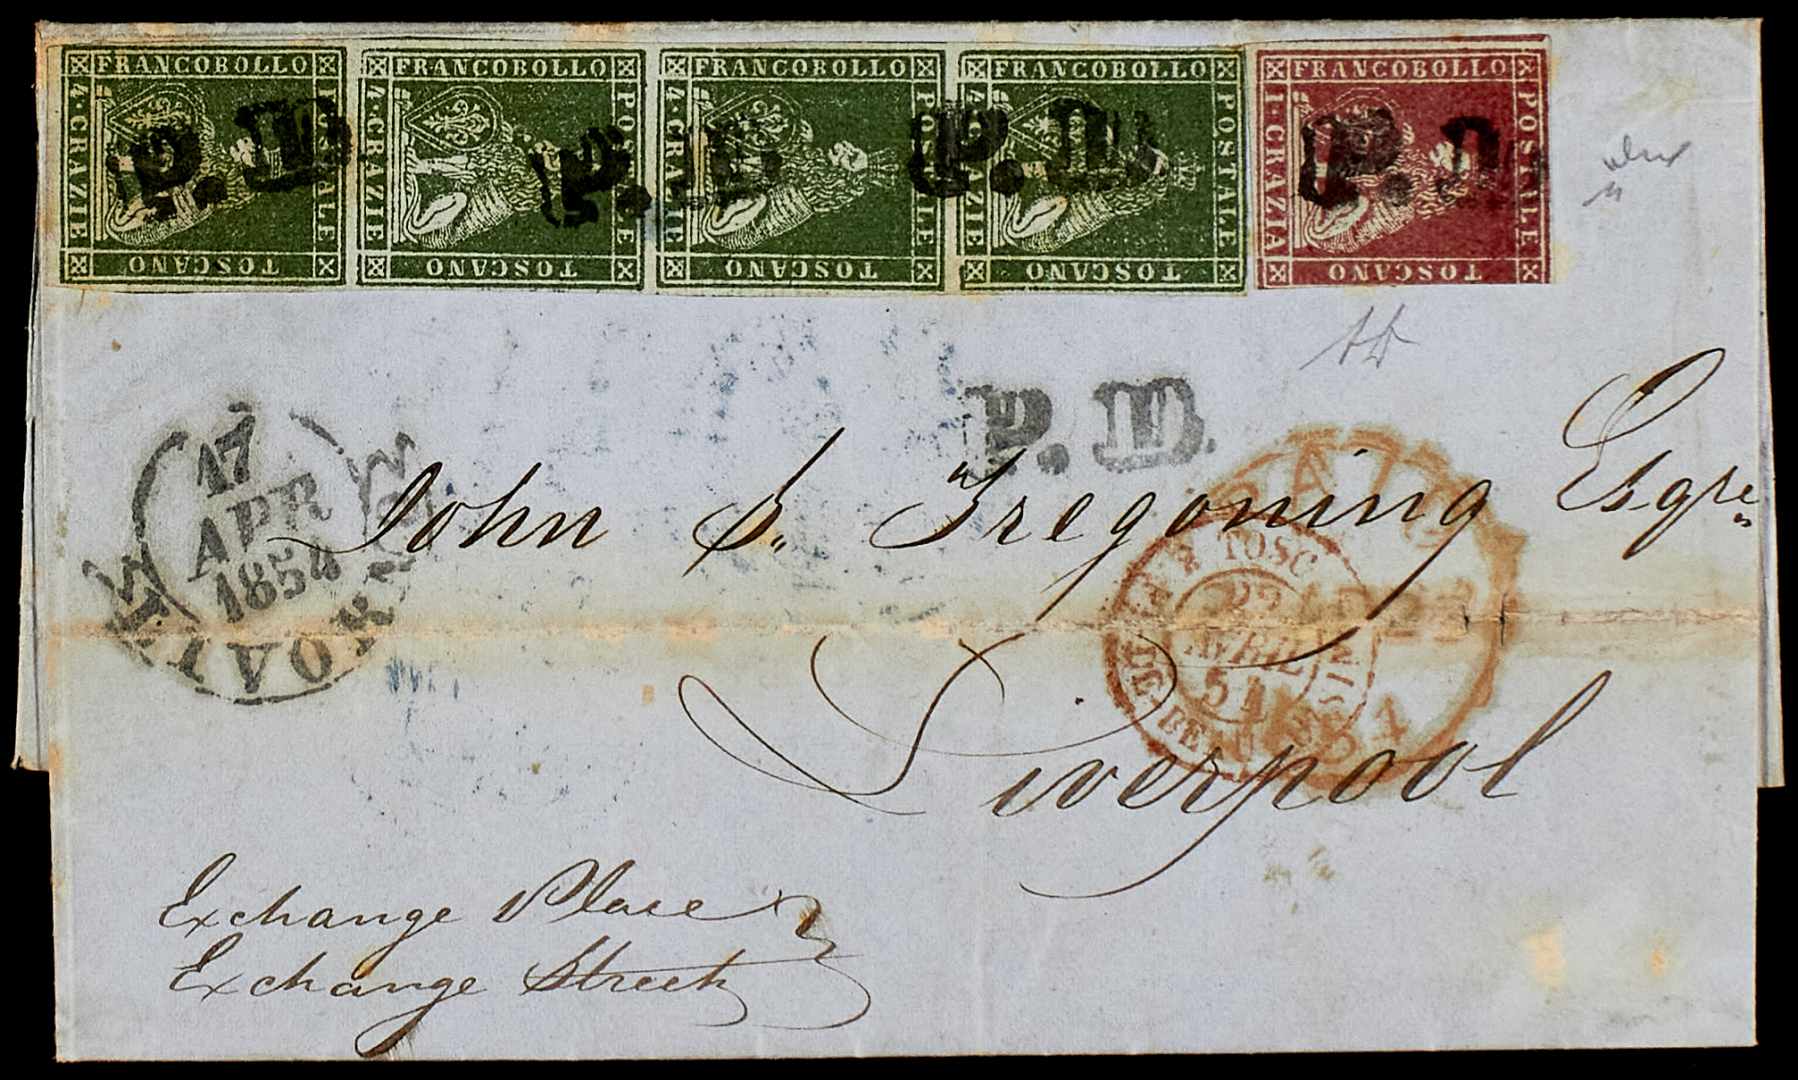 FRANCOBOLLO POSTALE TOSCANO 4·CRAZIE
FRANCOBOLLO POSTALE TOSCANO 4·CRAZIE
FRANCOBOLLO POSTALE TOSCANO 4·CRAZIE
FRANCOBOLLO POSTALE TOSCANO 4·CRAZIE
FRANCOBOLLO POSTALE TOSCANO 1·CRAZIA
P.D.
P.D.
P.D.
P.D.
P.D.
17
APR
1854
PAID
TOSC
22
AVRIL
54
AP 22
1854
John S. Tregoning Esqre
Liverpool
Exchange Place
Exchange Street